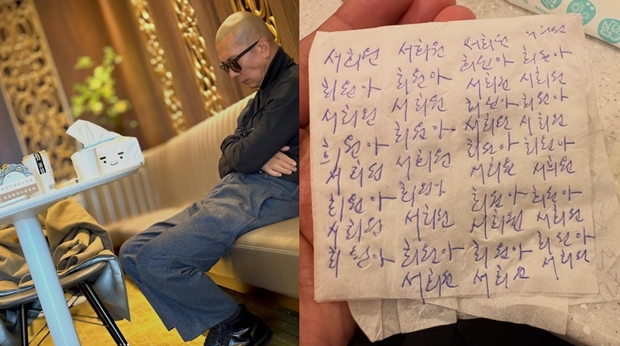 서희원 서희원 서희원 서희원
희원아 희원아
희원아 희원아 서희원 서희원
서희원 서희원 희원아 희원아
희원아 희원아 서희원 서희원
희원아 희원아
서희원 서희원 서희원 서희원
희원아 희원아 희원아 희원아
서희원 서희원 서희원 서희원
희원아 희원아 희원아 희원아
서희원 서희원 서희원